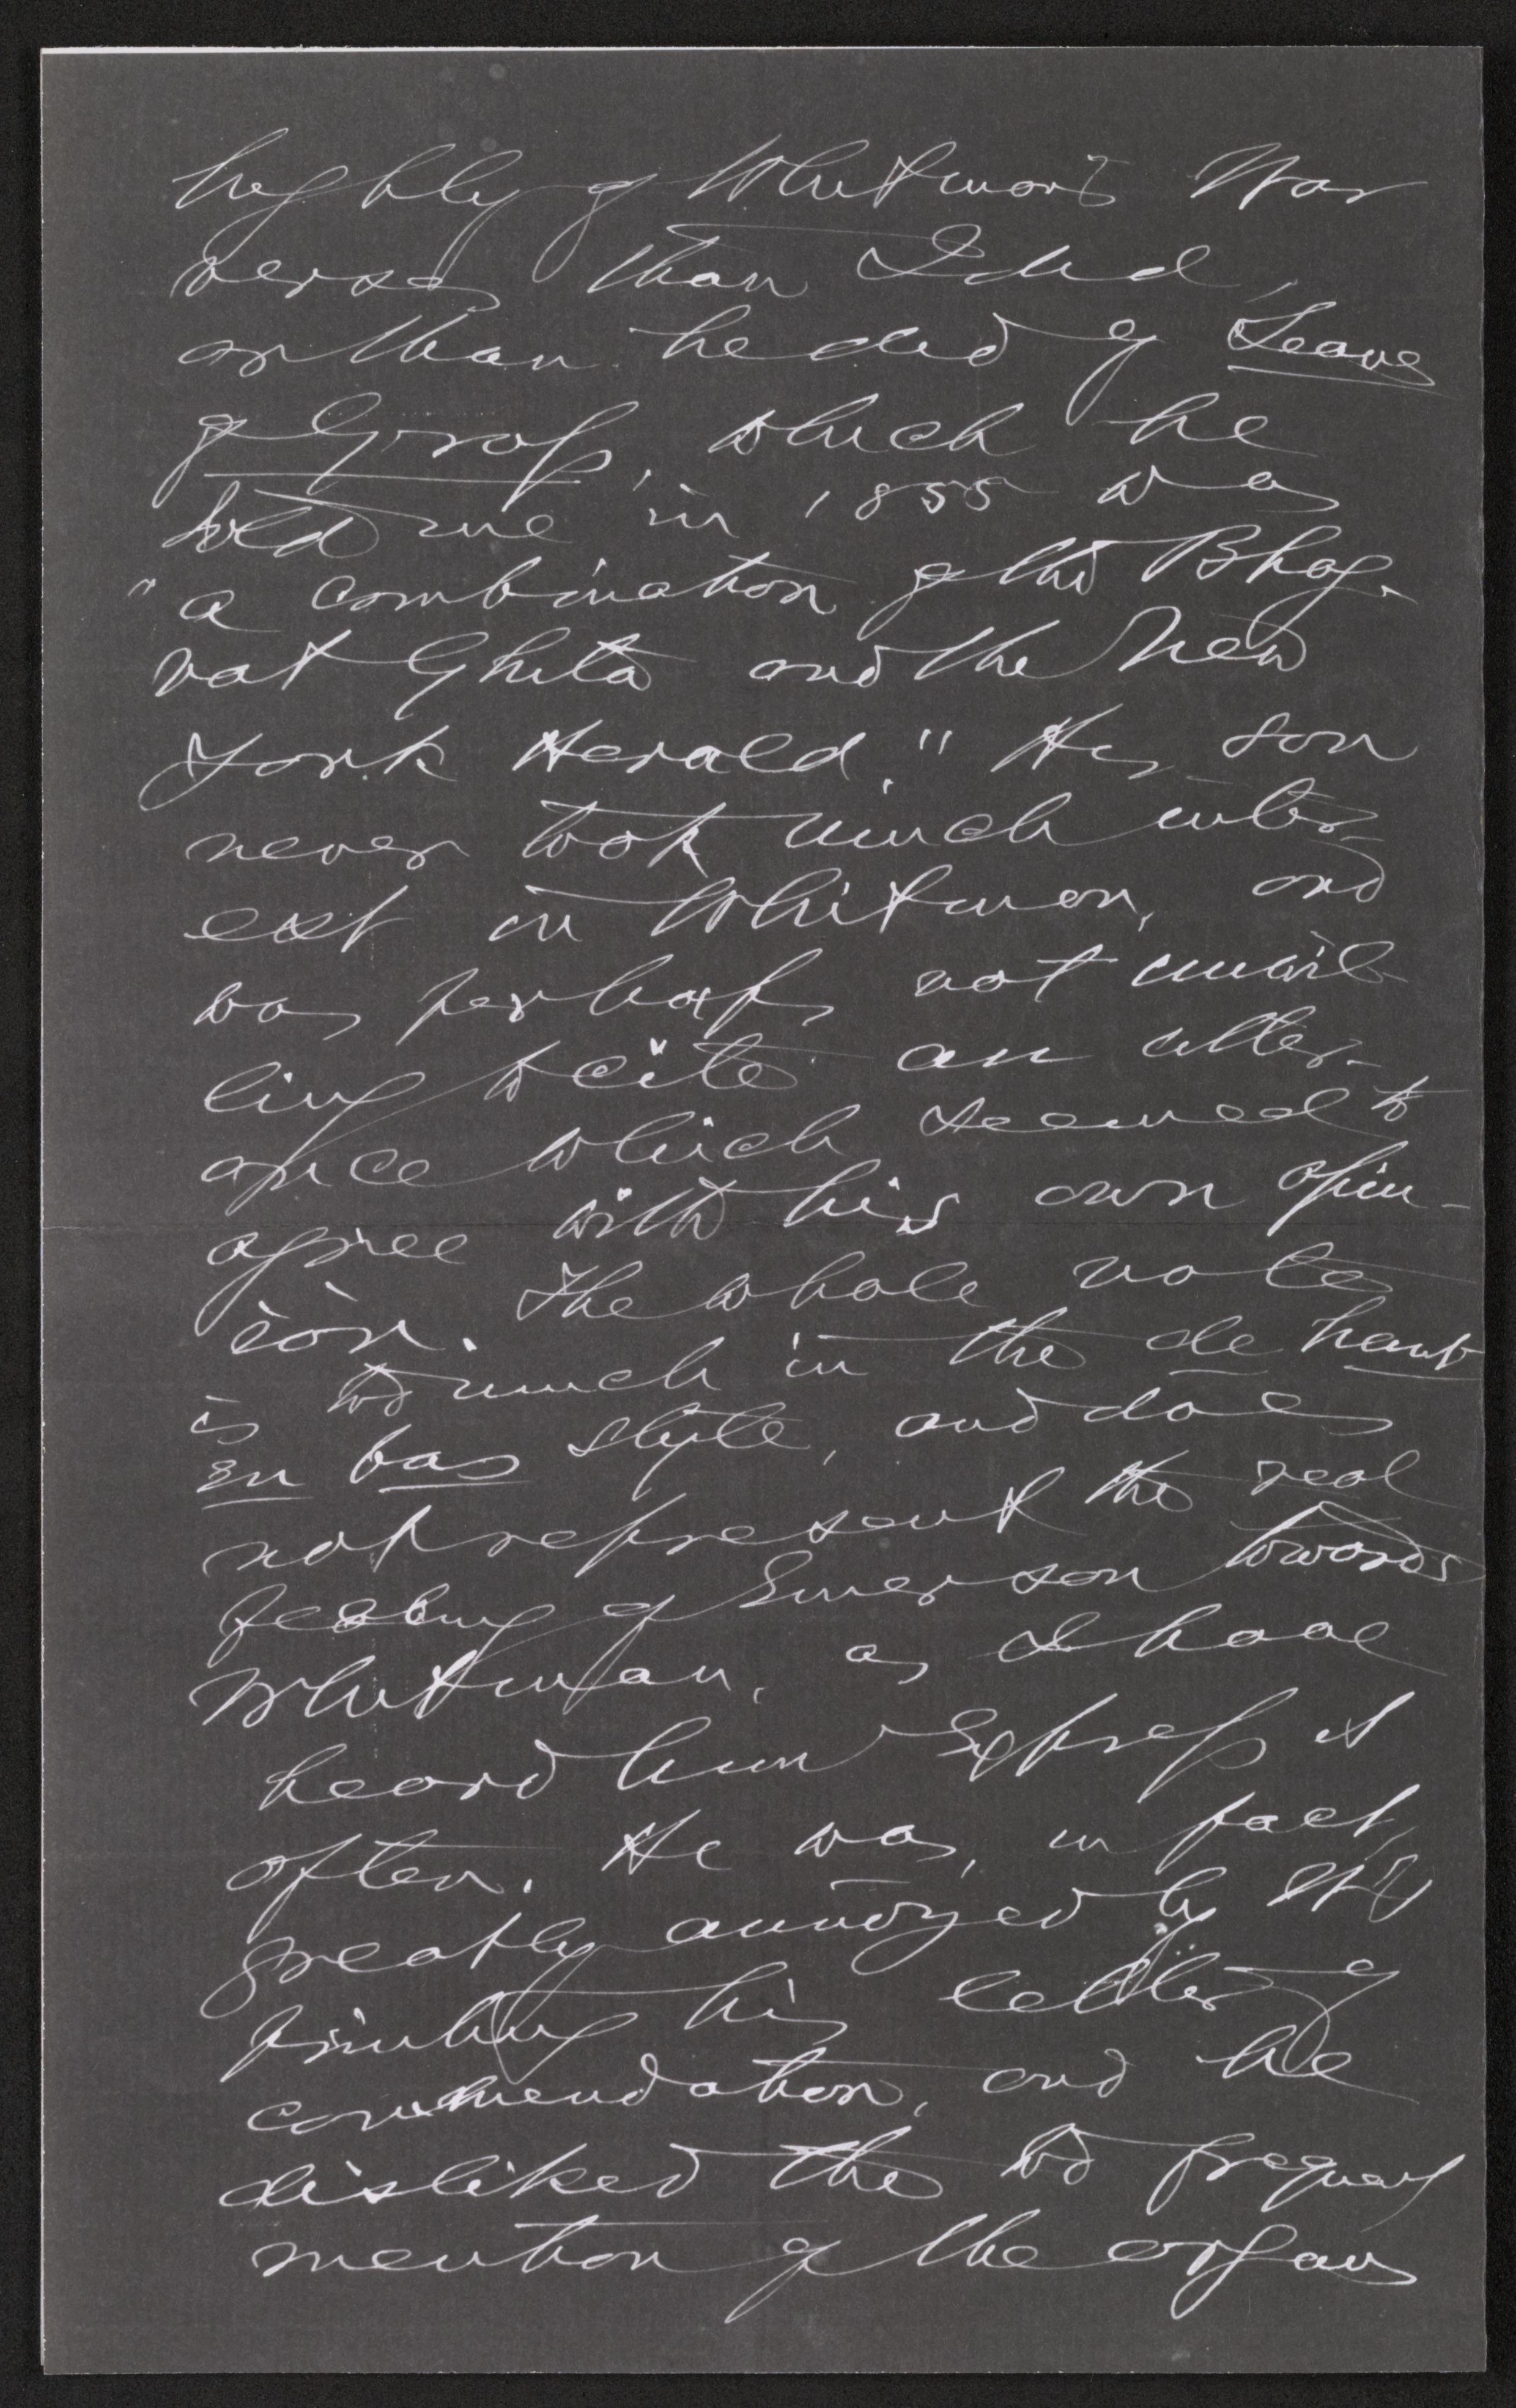 highly of Whitman's War
verses than I did,
or than he did of Leaves
of Grass, which he
told me in 1855 was
"a combination of the Bhag-
vat Ghita and the New
York Herald." His son
never took much inter-
est in Whitman, and
was perhaps not unwil-
ling to cite an utter-
ance which seemed to
agree with his own opin-
ion. The whole note
is too much in the de haut
en bas style, and does
not represent the real
feeling of Emerson towards
Whitman, as I have
heard him express it
often. He was, in fact,
greatly annoyed by W's
printing his letter of
commendation, and he
disliked the too frequent
mention of the organs